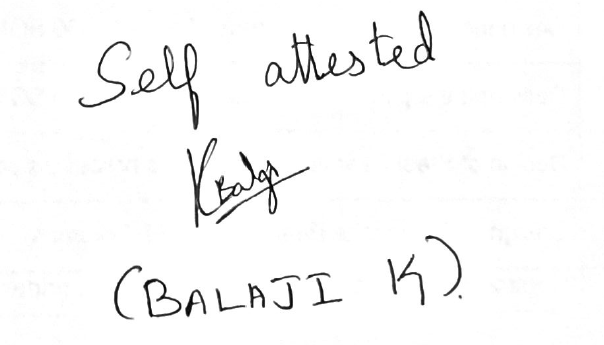 Self attested
KBalaji
(BALAJI K).